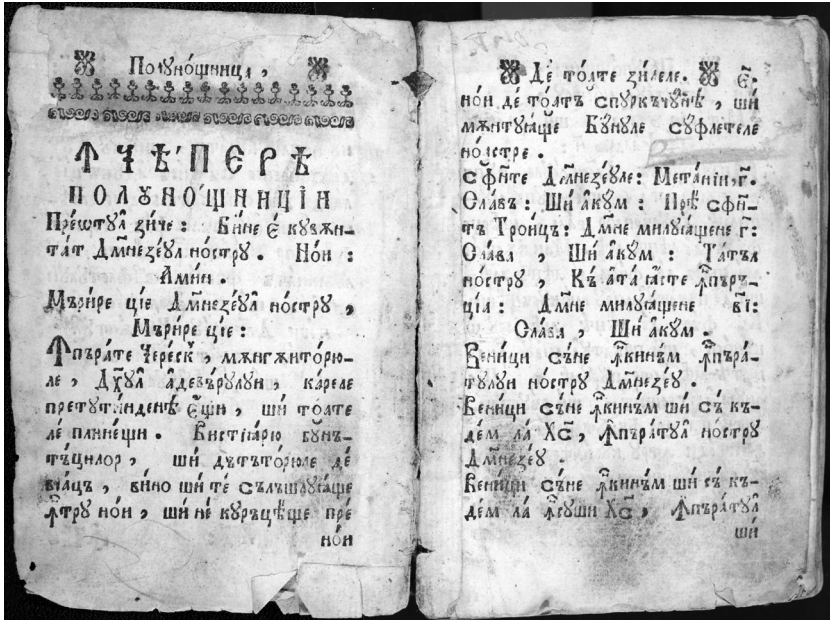 Полꙋно́щница,
Ꙟ҆ЧѢ́ПЕРѢ
ПОЛꙊНО́ЩНИЦІИ
Пре́ѡтꙋл зи́че : Би́не є҆ кꙋвѫн-
та́т Дм҃незе́ꙋл но́стрꙋ . Но́и :
Ами́н .
Мъри́ре ціе Дм҃незе́ꙋл но́стрꙋ ,
Мъри́ре ціе :
Ꙟ҆пъра́те Череск , мѫнгѫито́рю-
ле , Дх҃ꙋл а҆девъ́рꙋлꙋи , ка́реле
претꙋти́нденѣ є҆щи , ши то́ате
ле плине́щи . Вистїа́рю бꙋнъ-
тъ́цилор , ши дътъто́рюле де́
вїа́цъ , ви́но ши те сълъшлꙋꙗ́ще
ꙟ҆трꙋ но́и , ши не кꙋръцѣ́ще пре
но́и
Де то́ате зи́леле . є҃і :
но́и де то́атъ спꙋркъчꙋ́нѣ , ши
мѫнтꙋꙗ́ще Бꙋ́нꙋле сꙋ́флетеле
но́астре .
Сфи́нте Дм҃незе́ꙋле : Мета́нїи, г҃ .
Сла́въ : Ши а҆кꙋм : Прѣ сфи́н-
тъ Тро́ицъ : До́амне милꙋꙗ́щене г҃ :
Сла́ва , Ши а҆кꙋм : Та́тъл
но́стрꙋ , Къ а҆та ꙗ҆́сте ꙟ҆пъръ-
ціа : До́амне милꙋꙗ́щене в҃і :
Сла́ва , Ши а҆кꙋм .
Вени́ци съне ꙟ҆кинъ́м ꙟ҆пъра́-
тꙋлꙋи но́стрꙋ Дм҃незе́ꙋ .
Вени́ци съне ꙟ҆кинъ́м ши съ къ-
де́м ла Хс҃ , Ꙟ҆пъра́тꙋл но́стрꙋ
Дм҃незе́ꙋ .
Вени́ци съне ꙟ҆кинъ́м ши съ къ-
де́м ла ꙟ҆сꙋши Хс҃ , Ꙟ҆пъра́тꙋл
ши